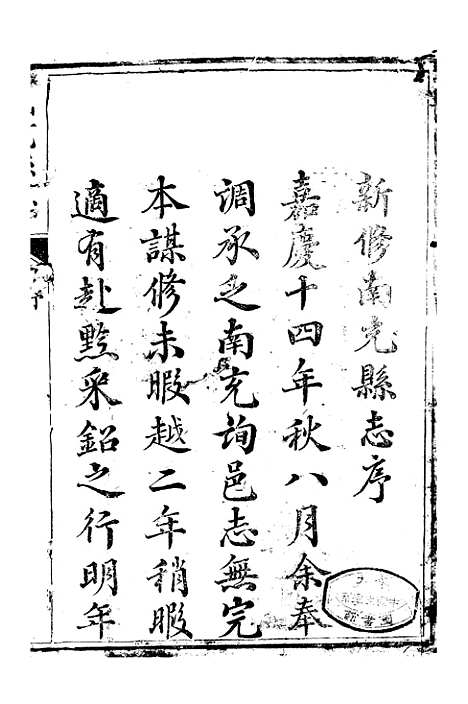 新修南充縣志序
嘉慶十四年秋八月余奉
調承乏南充詢邑志無完
本謀修未暇越二年稍暇
適有赴黔采鉛之行明年
序